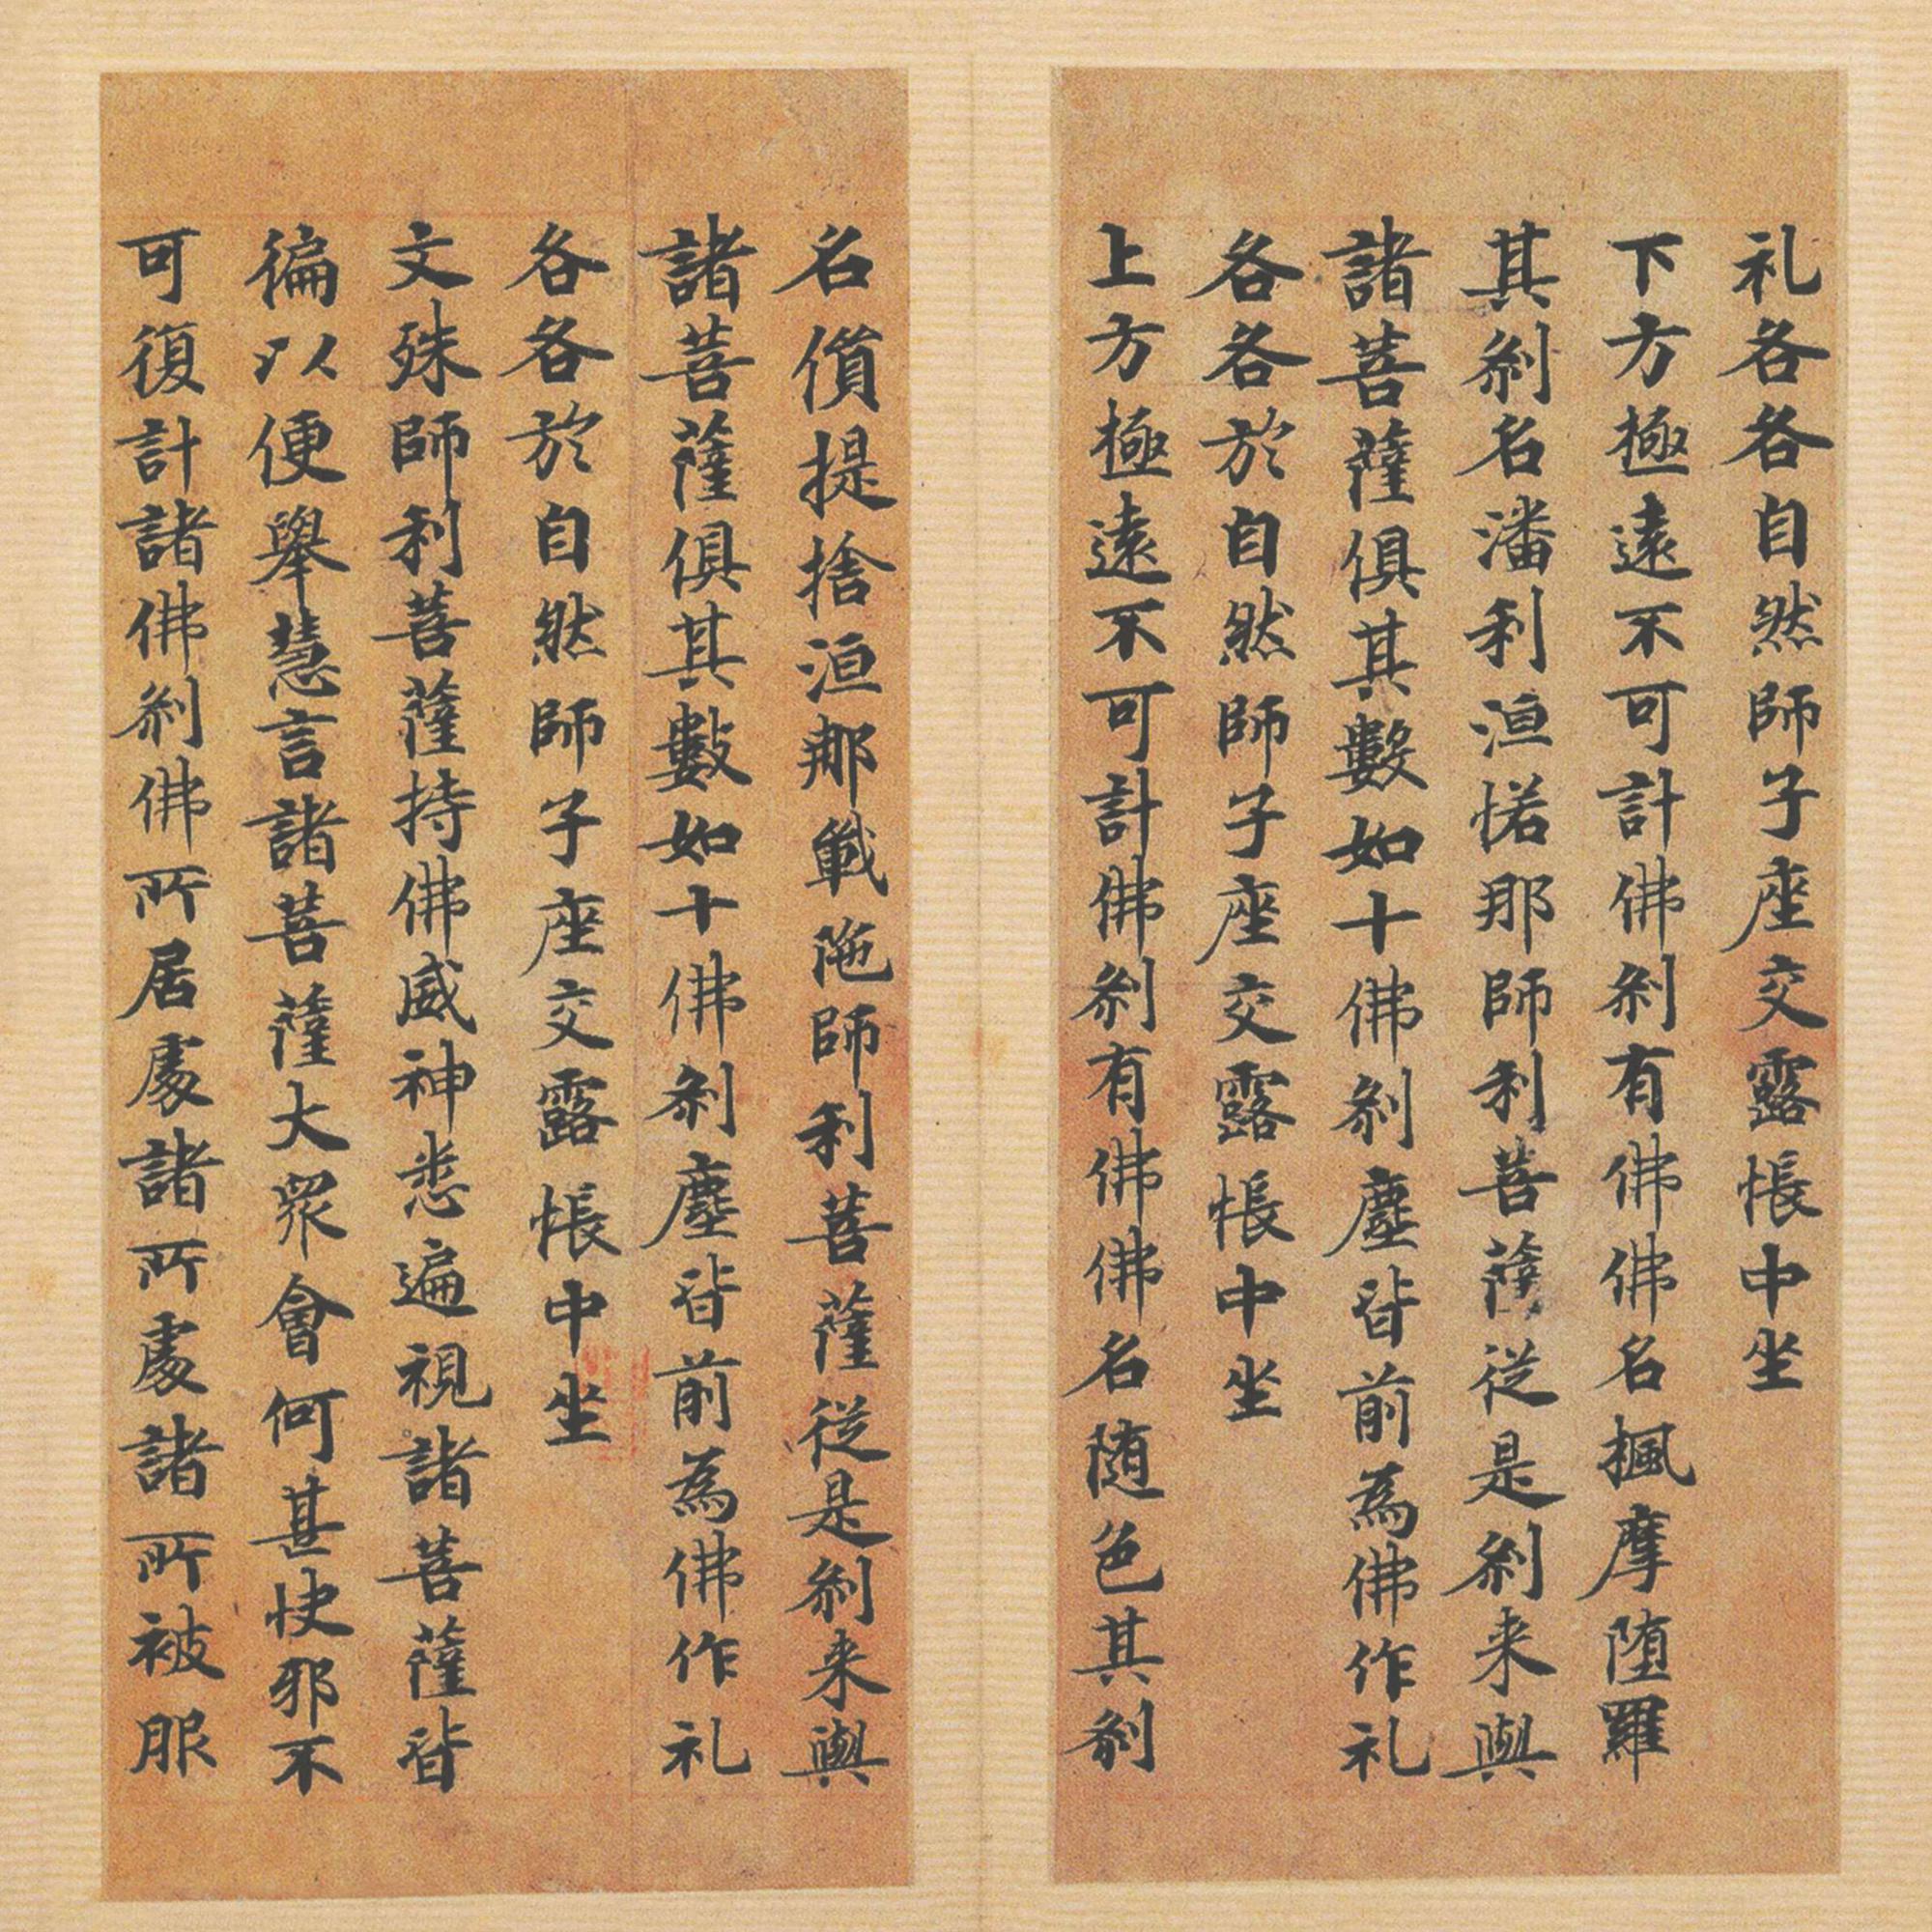 礼各各自然師子座交露帳中坐
下方極遠不可計佛刹有佛佛名楓摩堕羅
其刹名潘利洹惒那師利菩薩從是刹来與
諸菩薩俱其數如十佛刹塵皆前為佛作礼
各各於自然師子座交露帳中坐
上方極遠不可計佛刹有佛佛名随色其刹
名儧提捨洹那戰陁師利菩薩從是刹来與
諸菩薩俱其數如十佛刹塵皆前為佛作礼
各各於自然師子座交露帳中坐
文殊師利菩薩持佛威神悉遍視諸菩薩皆
徧以便舉慧言諸菩薩大衆會何甚快邪不
可復計諸佛刹佛所居處諸所處諸所被服